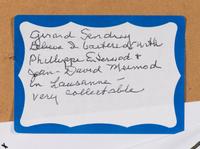 Gerard Sendrey
Believe I bartered with
Phillippe Eternod &
Jean-David Mermod
in Lausanne -
very collectable